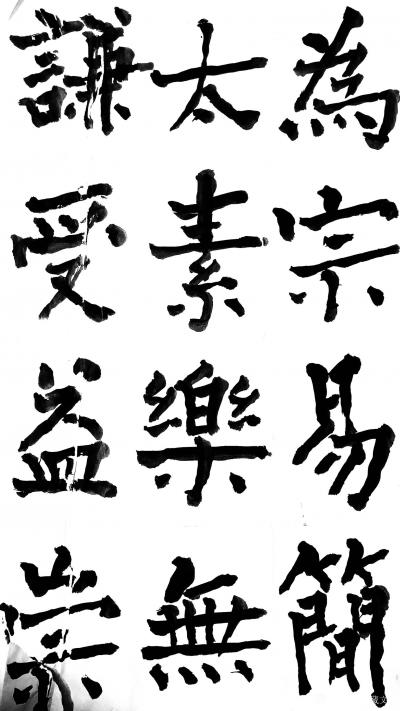 為宗易簡
太素樂無
謙受益崇